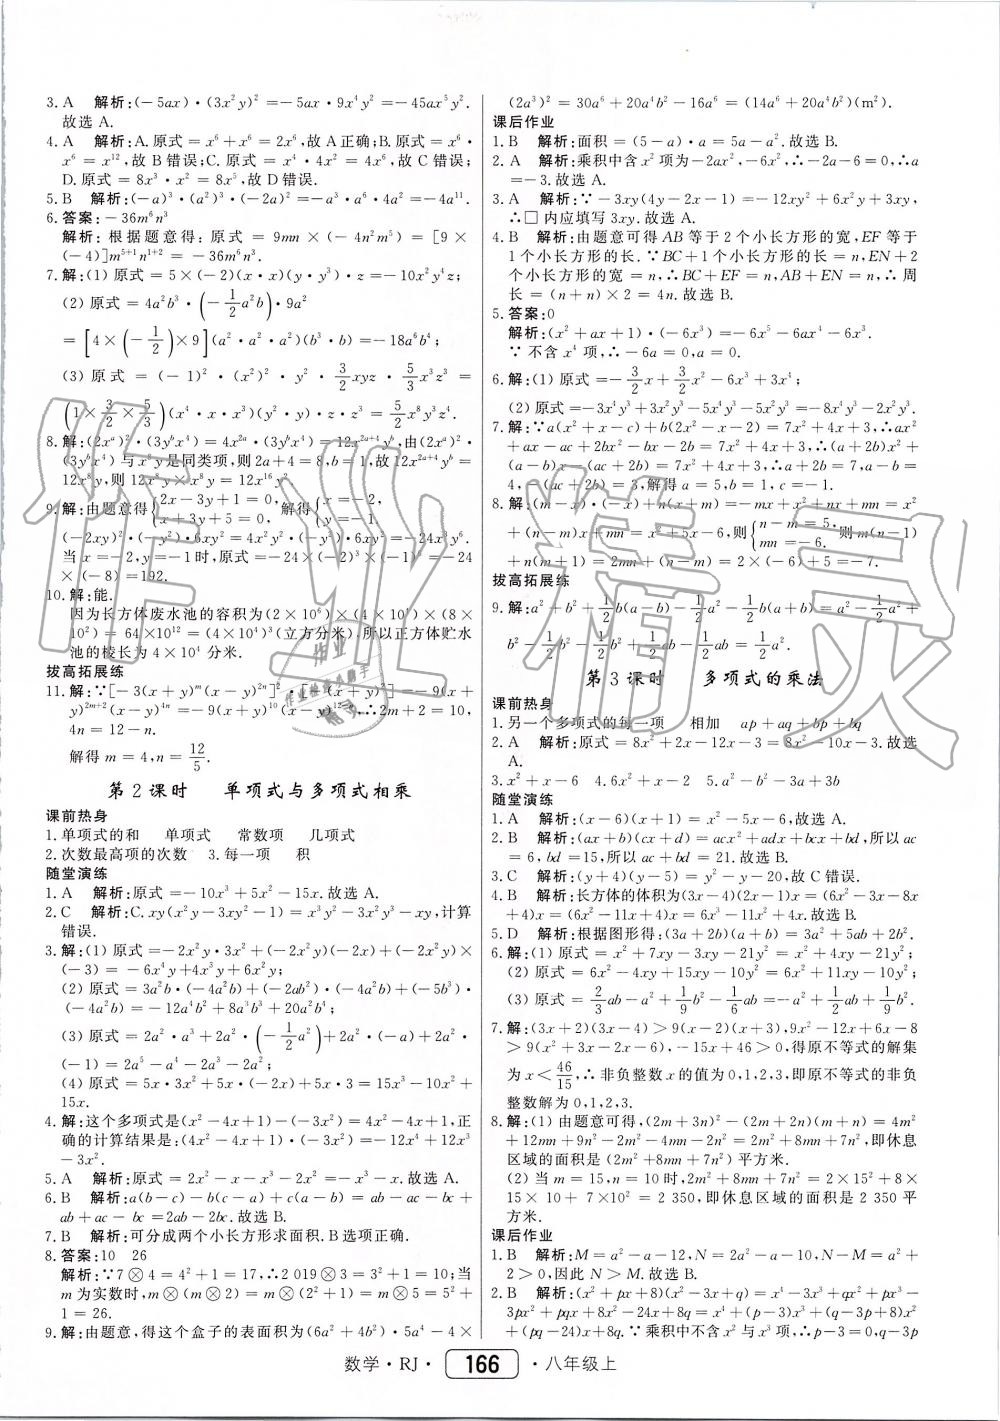 3. A　解析:(－5ax)·(3x²y)²＝－5ax·9x⁴y²＝－45ax⁵y².
故选 A.
4. A　解析:A.原式＝x⁶＋x⁶＝2x⁶,故 A 正确;B.原式＝x⁶·
x⁶＝x¹²,故 B 错误;C.原式＝x⁴·4x²＝4x⁶,故 C 错误;
D.原式＝8x³·x⁶＝8x⁹,故 D 错误.
5. B　解析:(－a)³·(a²)³·(－2a)²＝－a³·a⁶·4a²＝－4a¹¹.
6. 答案:－36m⁶n³
解析:根据题意得:原式＝9mn×(－4n²m⁵)＝[9×
(－4)]m⁵⁺¹n¹⁺²＝－36m⁶n³.
7. 解:(1)原式＝5×(－2)(x·x)(y·y³)·z＝－10x²y⁴z;
(2)原式＝4a²b³·(－1/2a²b)·9a²
＝[4×(－1/2)×9](a²·a²·a²)(b³·b)＝－18a⁶b⁴;
(3)原式＝(－1)²·(x²)²·y²·3/2xyz·5/3x³z³＝
(1×3/2×5/3)(x⁴·x·x³)(y²·y)·z·z³＝5/2x⁸y³z⁴.
8. 解:(2xᵃ)²·(3yᵇx⁴)＝4x²ᵃ·(3yᵇx⁴)＝12x²ᵃ⁺⁴yᵇ,由(2xᵃ)²·
(3yᵇx⁴)与x⁸y是同类项,则2a＋4＝8,b＝1,故12x²ᵃ⁺⁴yᵇ＝
12x⁸y,则12x⁸y·x⁸y＝12x¹⁶y².
9. 解:由题意得{2x－3y＋1＝0, x＋3y＋5＝0, 解得{x＝－2, y＝－1.
(－2xy)²·(－y²)·6xy²＝4x²y²·(－y²)·6xy²＝－24x³y⁶.
当x＝－2,y＝－1时,原式＝－24×(－2)³×(－1)⁶＝－24
×(－8)＝192.
10. 解:能.
因为长方体废水池的容积为(2×10⁶)×(4×10⁴)×(8×
10²)＝64×10¹²＝(4×10⁴)³(立方分米),所以正方体贮水
池的棱长为4×10⁴分米.
拔高拓展练
11. 解:∵[－3(x＋y)ᵐ(x－y)²ⁿ]²·[－(x＋y)²]＝－9(x＋
y)²ᵐ⁺²(x－y)⁴ⁿ＝－9(x＋y)¹⁰(x－y)¹²⁻ⁿ,∴2m＋2＝10,
4n＝12－n.
解得m＝4,n＝12/5.
第2课时　单项式与多项式相乘
课前热身
1. 单项式的和　单项式　常数项　几项式
2. 次数最高项的次数　3. 每一项　积
随堂演练
1. A　解析:原式＝－10x³＋5x²－15x.故选 A.
2. C　解析:C.xy(x²y－3xy²－1)＝x³y²－3x²y³－xy,计算
错误.
3. 解:(1)原式＝－2x²y·3x²＋(－2x²y)(－2x)＋(－2x²y)×
(－3)＝－6x⁴y＋4x³y＋6x²y;
(2)原式＝3a²b·(－4a²b)＋(－2ab²)·(－4a²b)＋(－5b³)·
(－4a²b)＝－12a⁴b²＋8a³b³＋20a²b⁴;
(3)原式＝2a²·a³＋2a²·(－1/2a²)＋2a²·(－a)＋2a²·
(－1)＝2a⁵－a⁴－2a³－2a²;
(4)原式＝5x·3x²＋5x·(－2x)＋5x·3＝15x³－10x²＋
15x.
4. 解:这个多项式是(x²－4x＋1)－(－3x²)＝4x²－4x＋1,正
确的计算结果是:(4x²－4x＋1)·(－3x²)＝－12x⁴＋12x³
－3x².
5. A　解析:原式＝2x²－x－2x²＝－x.故选 A.
6. B　解析:a(b－c)－b(c－a)＋c(a－b)＝ab－ac－bc＋
ab＋ac－bc＝2ab－2bc.故选 B.
7. B　解析:可分成两个小长方形求面积.B选项正确.
8. 答案:10　26
解析:∵7⊗4＝4²＋1＝17,∴2 019⊗3＝3²＋1＝10;当
m为实数时,m⊗(m⊗2)＝m⊗(2²＋1)＝m⊗5＝5²＋
1＝26.
9. 解:由题意,得这个盒子的表面积为(6a²＋4b²)·5a⁴－4×
(2a³)²＝30a⁶＋20a⁴b²－16a⁶＝(14a⁶＋20a⁴b²)(m²).
课后作业
1. B　解析:面积＝(5－a)·a＝5a－a².故选 B.
2. A　解析:乘积中含x²项为－2ax²,－6x²,∴－2a－6＝0,∴a
＝－3.故选 A.
3. A　解析:∵－3xy(4y－2x－1)＝－12xy²＋6x²y＋3xy,
∴□内应填写3xy.故选 A.
4. B　解析:由题意可得AB等于2个小长方形的宽,EF等于
1个小长方形的长.∵BC＋1个小长方形的长＝n,EN＋2
个小长方形的宽＝n,∴BC＋EF＝n,AB＋EN＝n,∴周
长＝(n＋n)×2＝4n.故选 B.
5. 答案:0
解析:(x²＋ax＋1)·(－6x³)＝－6x⁵－6ax⁴－6x³.
∵不含x⁴项,∴－6a＝0,a＝0.
6. 解:(1)原式＝－3/2x＋3/2x²－6x³＋3x⁴;
(2)原式＝－3x⁴y³＋3x²y³－5x⁴y³－5x²y³＝－8x⁴y³－2x²y³.
7. 解:∵a(x²＋x－c)＋b(2x²－x－2)＝7x²＋4x＋3,∴ax²＋
ax－ac＋2bx²－bx－2b＝7x²＋4x＋3,∴(a＋2b)x²＋
(a－b)x－(ac＋2b)＝7x²＋4x＋3,∴a＋2b＝7,a－b＝
4,－(ac＋2b)＝3,解得a＝5,b＝1,c＝－1.
8. 解:(m－x)·(－x)＋n(x＋m)＝－mx＋x²＋nx＋mn＝x²＋
(n－m)x＋mn＝x²＋5x－6,则{n－m＝5, mn＝－6. ∴m(n－1)
＋n(m＋1)＝2mn＋(n－m)＝2×(－6)＋5＝－7.
拔高拓展练
9. 解:a²＋b²＋1/2b(a－b)－1/2a²－1/2b(a＋b)＝a²－1/2a²＋
b²－1/2b²－1/2b²＋1/2ab－1/2ab＝1/2a².
第3课时　多项式的乘法
课前热身
1. 另一个多项式的每一项　相加　ap＋aq＋bp＋bq
2. A　解析:原式＝8x²＋2x－12x－3＝8x²－10x－3.故选
A.
3. x²＋x－6　4. 6x²＋x－2　5. a²－b²－3a＋3b
随堂演练
1. A　解析:(x－6)(x＋1)＝x²－5x－6,故选 A.
2. B　解析:(ax＋b)(cx＋d)＝acx²＋adx＋bcx＋bd,所以ac
＝6,bd＝15,所以ac＋bd＝21.故选 B.
3. C　解析:(y＋4)(y－5)＝y²－y－20,故 C 错误.
4. B　解析:长方体的体积为(3x－4)(2x－1)x＝(6x²－3x－8x
＋4)x＝(6x²－11x＋4)x＝6x³－11x²＋4x.故选 B.
5. D　解析:根据图形得:(3a＋2b)(a＋b)＝3a²＋5ab＋2b².
6. 解:(1)原式＝x²＋7xy－3xy－21y²＝x²＋4xy－21y²;
(2)原式＝6x²－4xy＋15xy－10y²＝6x²＋11xy－10y²;
(3)原式＝2/3ab－a²＋1/9b²－1/6ab＝－a²＋1/2ab＋1/9b².
7. 解:(3x＋2)(3x－4)＞9(x－2)(x＋3),9x²－12x＋6x－8
＞9(x²＋3x－2x－6),－15x＋46＞0,得原不等式的解集
为x＜46/15,∴非负整数x的值为0,1,2,3,即原不等式的非负
整数解为0,1,2,3.
8. 解:(1)由题意可得,(2m＋3n)²－(2m＋2n)(m＋n)＝4m²
＋12mn＋9n²－2m²－4mn－2n²＝2m²＋8mn＋7n²,即休息
区域的面积是(2m²＋8mn＋7n²)平方米.
(2)当m＝15,n＝10时,2m²＋8mn＋7n²＝2×15²＋8×
15×10＋7×10²＝2 350,即休息区域的面积是2 350平
方米.
课后作业
1. B　解析:M＝a²－a－12,N＝2a²－a－10,N－M＝a²＋
2＞0,因此N＞M.故选 B.
2. B　解析:(x²＋px＋8)(x²－3x＋q)＝x⁴－3x³＋qx²＋px³－
3px²＋pqx＋8x²－24x＋8q＝x⁴＋(p－3)x³＋(q－3p＋8)x²
＋(pq－24)x＋8q.∵乘积中不含x²与x³项,∴p－3＝0,q－3p
数学·RJ· 166 ·八年级上
作业精灵
作业检查小助手